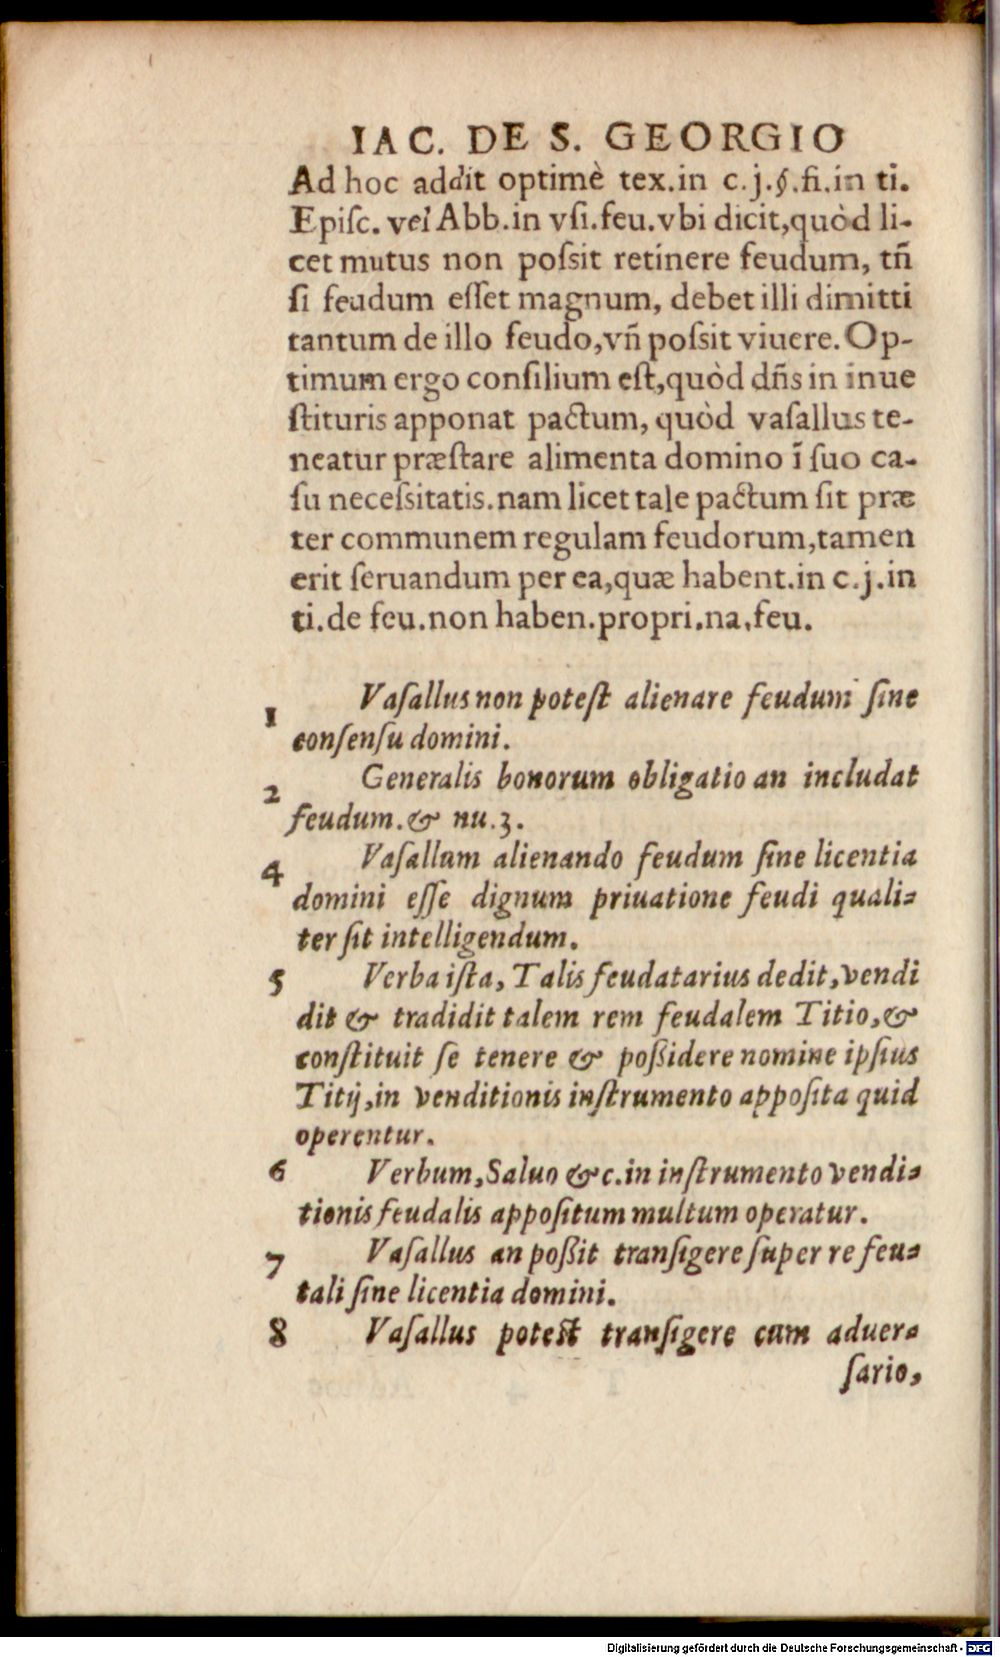 IAC. DE S. GEORGIO
Ad hoc addit optimè tex.in c.j.§.fi.in ti.
Episc. vel Abb.in vsi.feu.vbi dicit,quòd li-
cet mutus non possit retinere feudum, tñ
si feudum esset magnum, debet illi dimitti
tantum de illo feudo,vñ possit viuere. Op-
timum ergo consilium est,quòd dñs in inue
stituris apponat pactum, quòd vasallus te-
neatur præstare alimenta domino ĩ suo ca-
su necessitatis.nam licet tale pactum sit præ
ter communem regulam feudorum,tamen
erit seruandum per ea,quæ habent.in c.j.in
ti.de feu.non haben.propri.na.feu.
1 Vasallus non potest alienare feudum sine
consensu domini.
2 Generalis bonorum obligatio an includat
feudum.& nu.3.
4 Vasallum alienando feudum sine licentia
domini esse dignum priuatione feudi quali-
ter sit intelligendum.
5 Verba ista, Talis feudatarius dedit,vendi
dit & tradidit talem rem feudalem Titio,&
constituit se tenere & poßidere nomine ipsius
Titij,in venditionis instrumento apposita quid
operentur.
6 Verbum,Saluo &c.in instrumento vendi-
tionis feudalis appositum multum operatur.
7 Vasallus an poßit transigere super re feu-
tali sine licentia domini.
8 Vasallus potest transigere cum aduer-
sario,
Digitalisierung gefördert durch die Deutsche Forschungsgemeinschaft - DFG